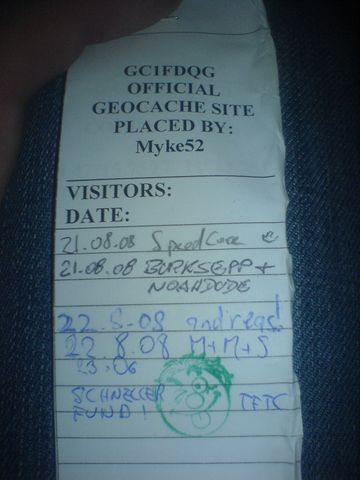 GC1FDQG
OFFICIAL
GEOCACHE SITE
PLACED BY:
Myke52
VISITORS:
DATE:
21.08.08 SpeedCore
21.08.08 BURKSEPP +
NOAHDUDE
22.8.08 andreas!
22.8.08 M+M+S
23:06
SCHNELLER TFTC
FUND!